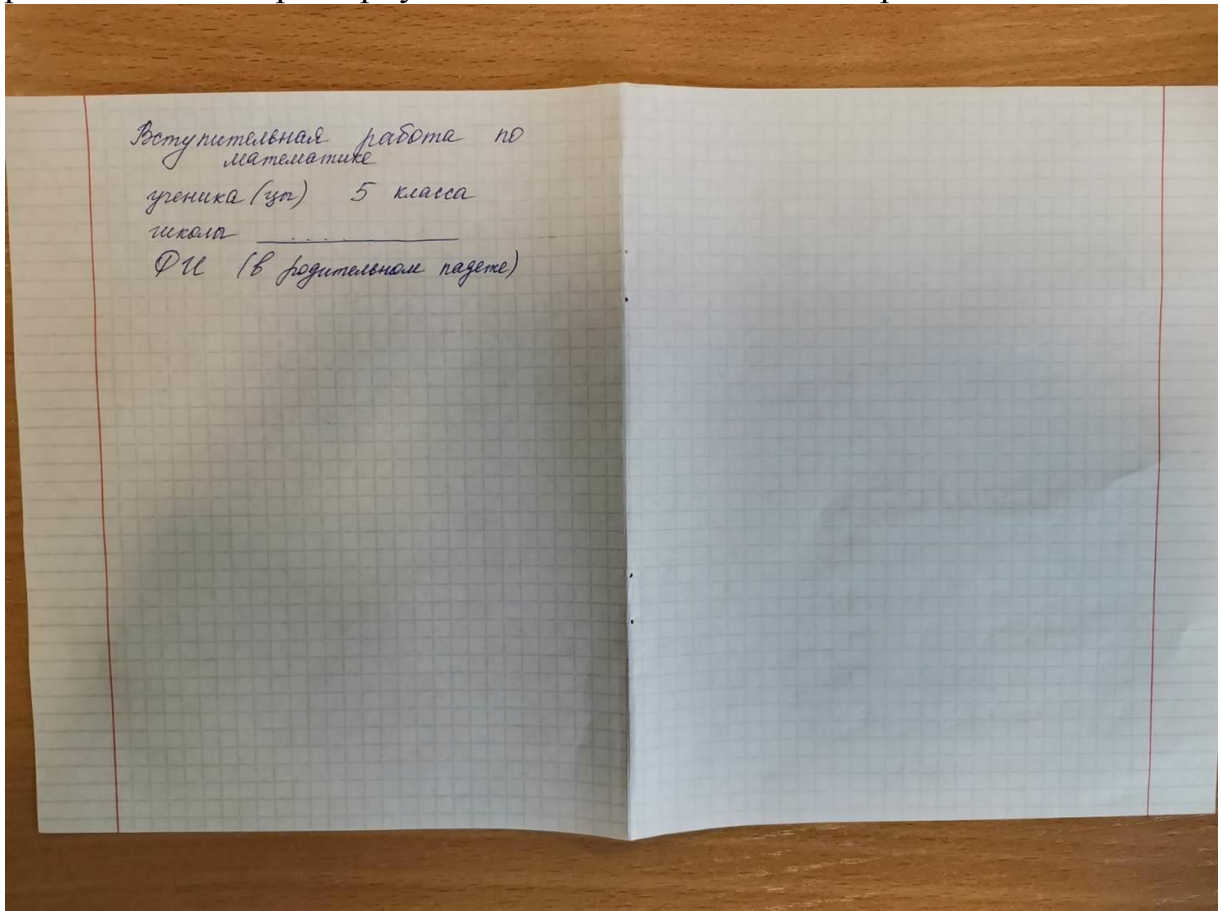 Вступительная работа по
математике
ученика (цы) 5 класса
школы
ФИ (в родительном падеже)